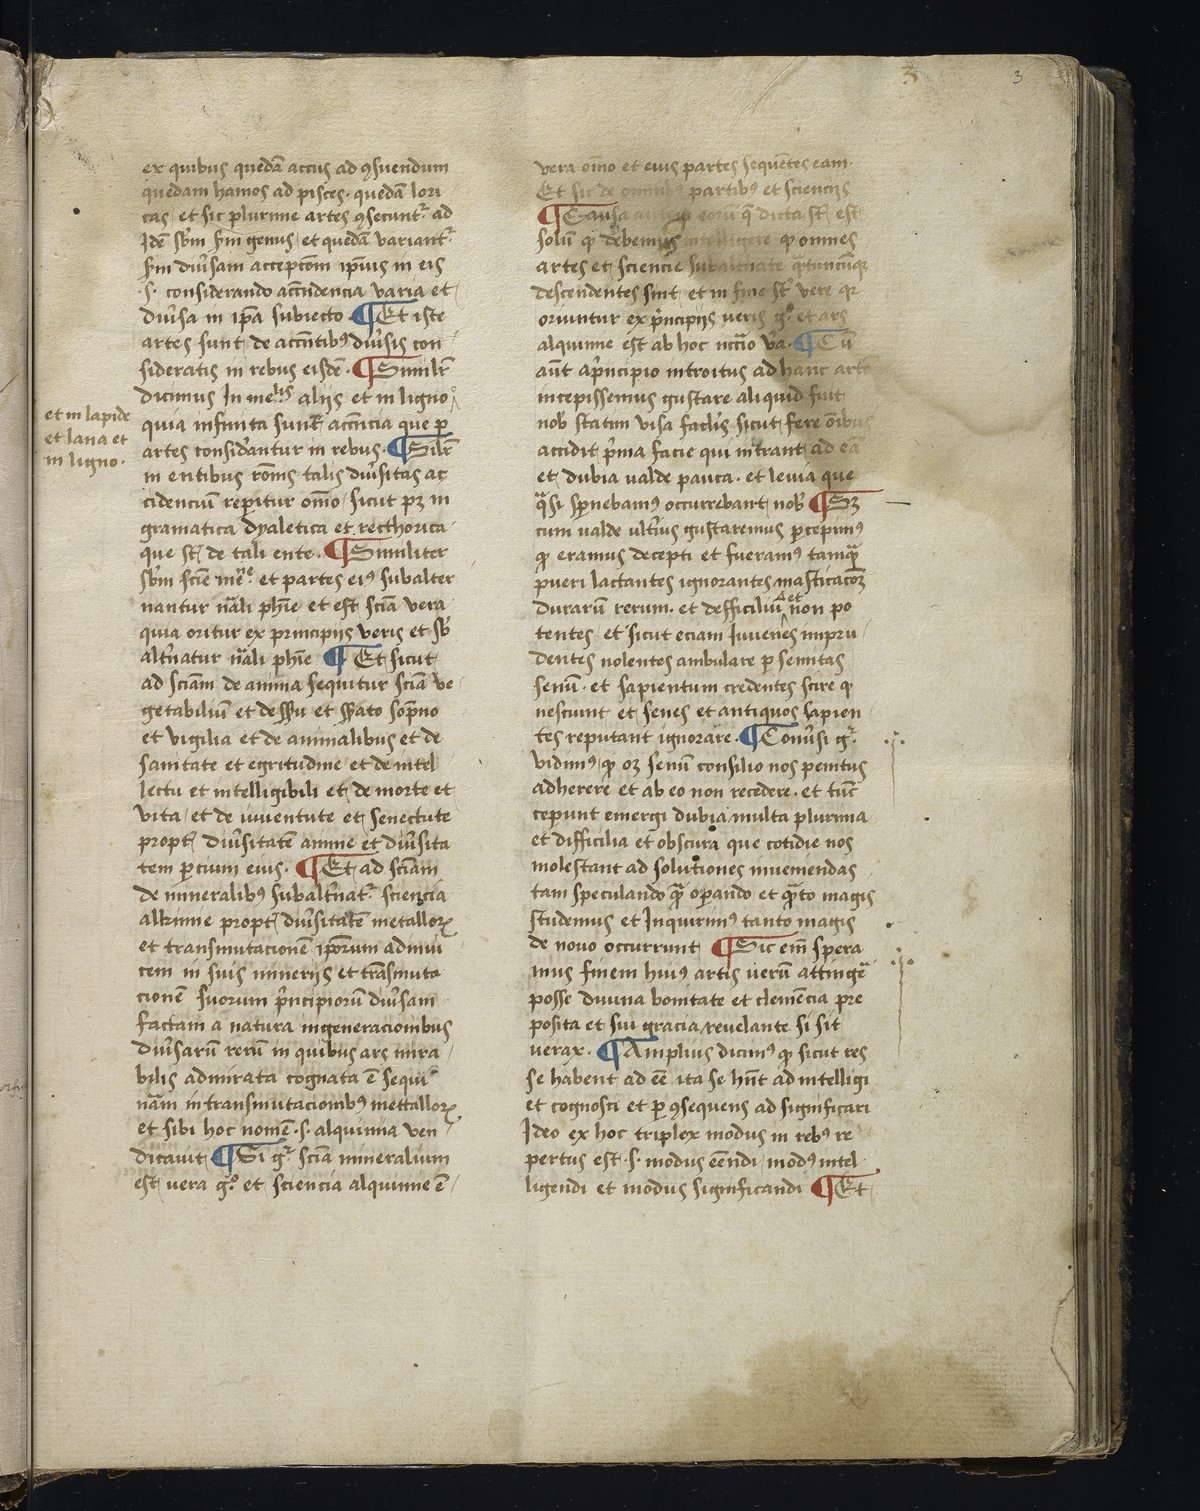 3 3
ex quibus quedā accus ad ꝯsuendum
quedam hamos ad pisces · quedā lori
cas / et sic plurime artes ꝯsecunt᷑ ad
Idē sb̄m sm̄ genus / et quedā variant᷑
sm̄ diūsam accepcōm ip̄ius in eis
·s· considerando accn̄dencia varia et /
diūsa in ip̄a subiecto ¶ Et iste
artes sunt de accn̄tibꝰ diūsis con
sideratis in rebus eisdē · ¶ Similr̄
dicimus In meᵗⁱˢ alijs et in ligno
et in lapide
et lana et
in ligno ·
quia infinita sunt accn̄cia que ꝑ
artes considāntur in rebus · ¶ Silr̄
in entibus rōnis talis diūsitas ac
cidenciū repitur om̄o / sicut pꝫ in
gramatica dyaletica et recthorica ·
que st̄ de tali ente · ¶ Similiter
sb̄m sciē meⁿᵉ et partes eiꝰ subalter
nantur nāli ph̄ie et est sciā vera
quia oritur ex principijs veris et sb̄
alt̄natur nāli ph̄ie ¶ Et sicut
ad sciām de anima sequitur sciā ve
getabiliū et de ssu et ssato sop̄no
et vigilia et de animalibus et de
sanitate et egritudine et de intel
lectu et intelligibili et de morte et
vita / et de iuuentute et senectute
propt̄ diūsitatē anime et diūsita
tem ꝑcium eius · ¶ Et ad sciām
de mineralibꝰ subalt̄nat᷑ sciencia
alkimie propt̄ diūsitatē metalloꝝ
et transmutacionē ip̄orum adinui
cem in suis minerijs et trāsmuta
cionē suorum p̄ncipiorū diūsam
factam a natura ingeneracionibus
diūsarū rerū in quibus ars mira /
bilis admirata cognata ē sequi
nām in transmutacionibꝰ mettalloꝝ
et sibi hoc nomē ·s· alquimia ven /
dicauit ¶ Si gᵒ sciā mineralium
est / vera gᵒ et sciencia alquimie ē /
vera om̄o et eius partes sequētes eam ·
Et sic de omnibꝰ partibꝰ et sciencijs
¶ Causa autem eorū q̄ dicta st̄ est
solū ꝙ debemus intelligere ꝙ omnes
artes et sciencie subalt̄nate q̄tuncūqꝫ
descendentes sint et in fine st̄ vere qr
oriuntur ex p̄ncipijs veris gᵒ et ars
alquimie est ab hoc nc̄cio v̄a · ¶ Cū
aūt ap̄ncipio introitus ad hanc artē
incepissemus gustare aliquid fuit
nob̄ statim visa facl̄is sicut fere ōibus
accidit p̄ma facie qui intrant ad eā
et dubia valde pauca · et leuia que
q̄si sp̄nebamꝰ occurrebant nob̄ ¶ Sꝫ
cum valde ult̄ius gustaremus ꝑcepimꝰ
ꝙ eramus decepti et fueramꝰ tamq̄
pueri lactantes ignorantes masticacōꝫ
durarū rerum · et defficiliū et non po
tentes et sicut eciam Iuuenes impru
dentes nolentes ambulare ꝑ semitas
senū · et sapientum credentes scire ꝙ
nesciunt et senes et antiquos sapien
tes reputant ignorare · ¶ Conūsi gᵒ
vidimꝰ ꝙ oꝫ senū consilio nos penitus
adherere et ab eo non recedere · et tūc
cepunt emergi dubia multa plurima
et difficilia et obscura que cotidie nos
molestant ad soluciones inueniendas
tam speculando q̄ oꝑando et q̄to magis
studemus et Inquirimꝰ tanto magis
de nouo occurrunt ¶ Sic em̄ spera
mus finem huiꝰ artis uerū attingē
posse diuina bonitate et clemēcia pre
posita et sui gracia reuelante si sit
uerax · ¶ Amplius dicimꝰ ꝙ sicut res
se habent ad eē ita se hn̄t ad intelligi
et cognosci et ꝑ ꝯsequens ad significari
Ideo ex hoc triplex modus in rebꝰ re
pertus est ·s· modus eēndi / modꝰ intel ·
ligendi et modus significandi ¶ Et